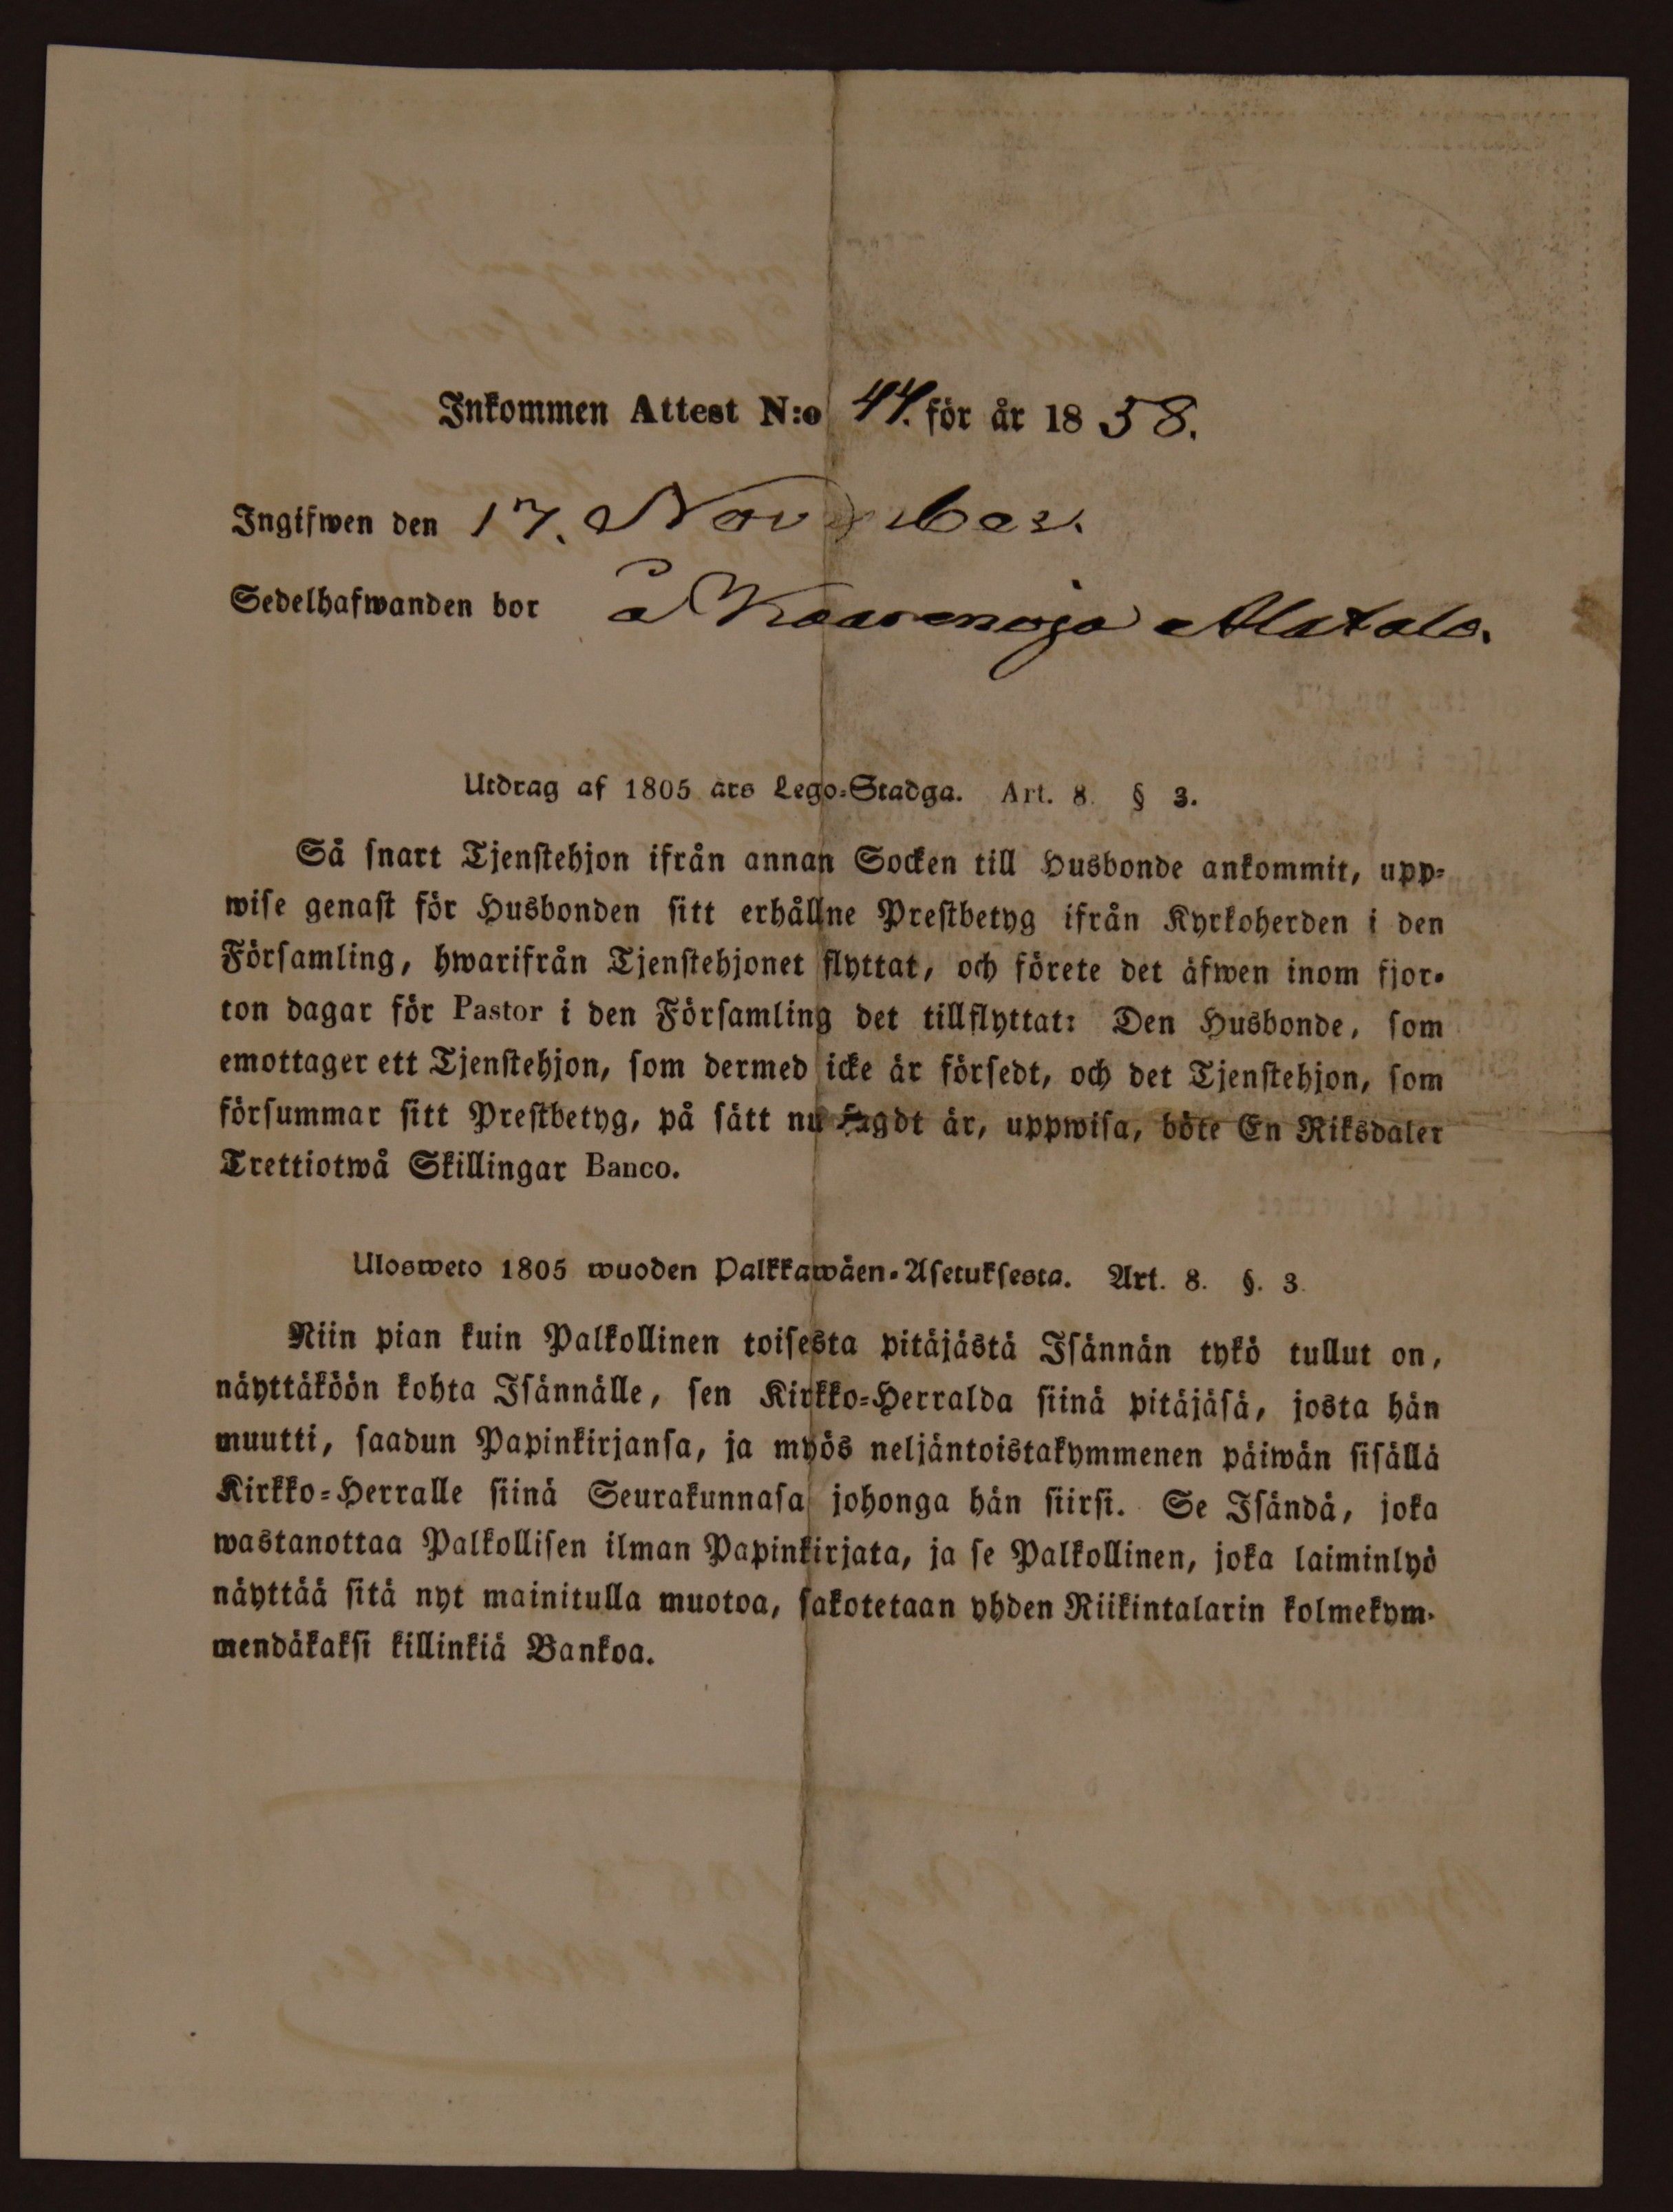 Inkommen Attest N:o 44. för år 1858.
Ingifwen den 17. November.
Sedelhafwanden bor å Kaarenoja Alatalo.
Utdrag af 1805 års Lego-Stadga. Art. 8. § 3.
Så snart Tjenstehjon ifrån annan Socken till Husbonde ankommit, upp-
wise genast för Husbonden sitt erhållne Prestbetyg ifrån Kyrkoherden i den
Församling, hwarifrån Tjenstehjonet flyttat, och förete det äfwen inom fjor-
ton dagar för Pastor i den Församling det tillflyttat: Den Husbonde, som
emottager ett Tjenstehjon, som dermed icke är försedt, och det Tjenstehjon, som
försummar sitt Prestbetyg, på sätt nu sagdt är, uppwisa, böte En Riksdaler
Trettiotwå Skillingar Banco.
Ulosweto 1805 wuoden Palkkawäen-Asetuksesta. Art. 8. §. 3.
Niin pian kuin Palkollinen toisesta pitäjästä Isännän tykö tullut on,
näyttäköön kohta Isännälle, sen Kirkko-Herralda siinä pitäjäsä, josta hän
muutti, saadun Papinkirjansa, ja myös neljäntoistakymmenen päiwän sisällä
Kirkko-Herralle siinä Seurakunnasa johonga hän siirsi. Se Isändä, joka
wastanottaa Palkollisen ilman Papinkirjata, ja se Palkollinen, joka laiminlyö
näyttää sitä nyt mainitulla muotoa, sakotetaan yhden Riikintalarin kolmekym-
mendäkaksi killinkiä Bankoa.